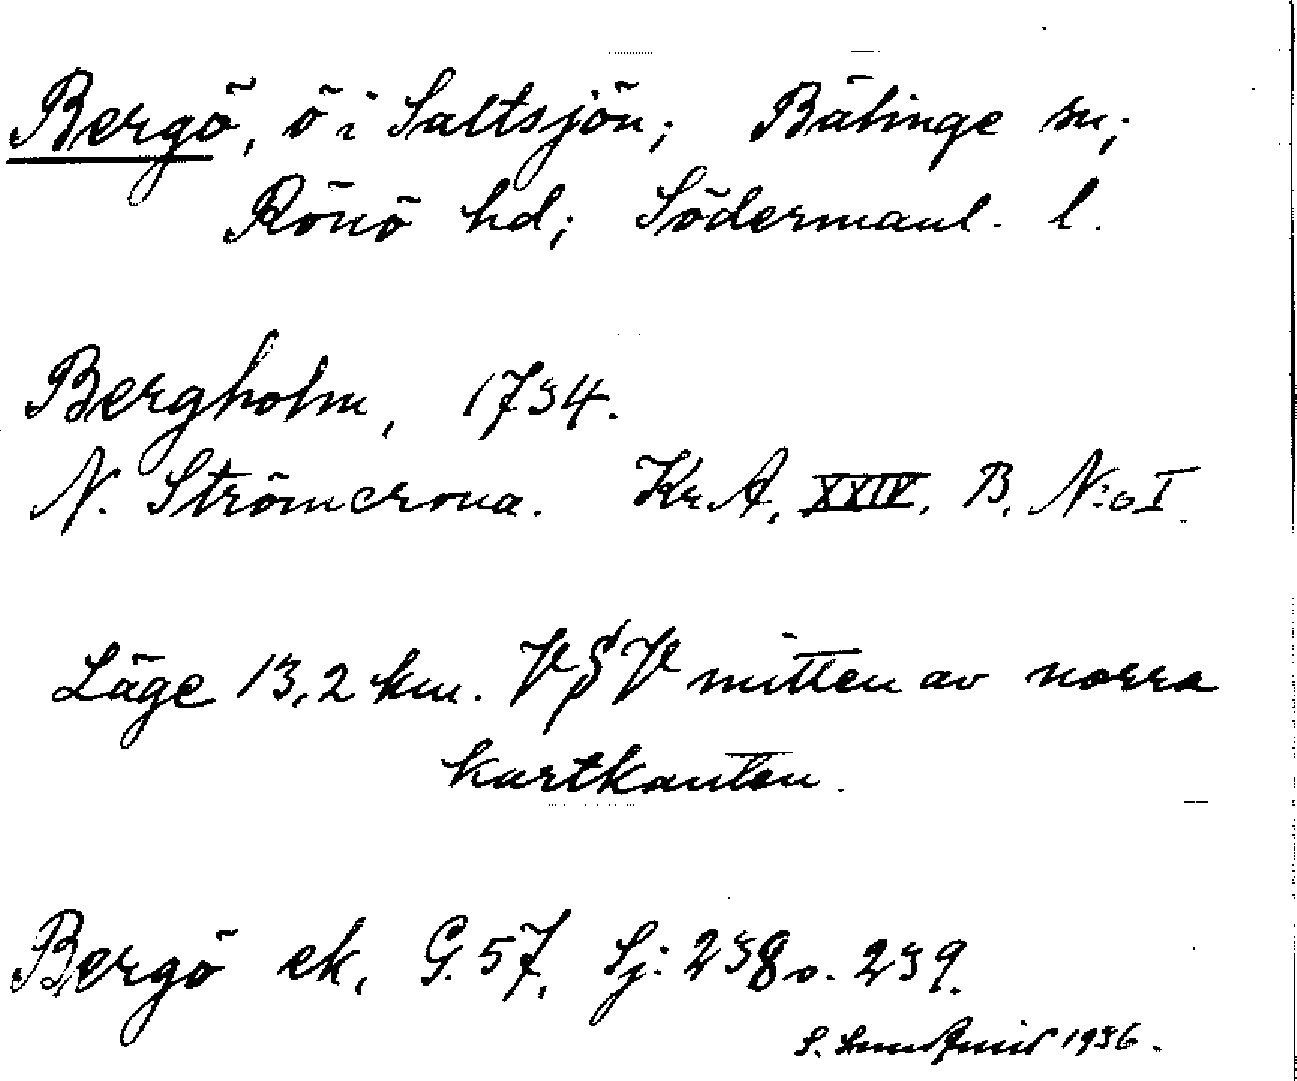 Bergö, ö i Saltsjön; Bälinge sn;
Rönö hd; Södermanl. l.
Bergholm, 1734.
N. Strömcrona. Kr.A. XXIV. B. N:o I.
Läge 13,2 km. VSV mitten av norra
kartkanten.
Bergö ek. G. 57. Sj: 238 o. 239.
S. 1936.